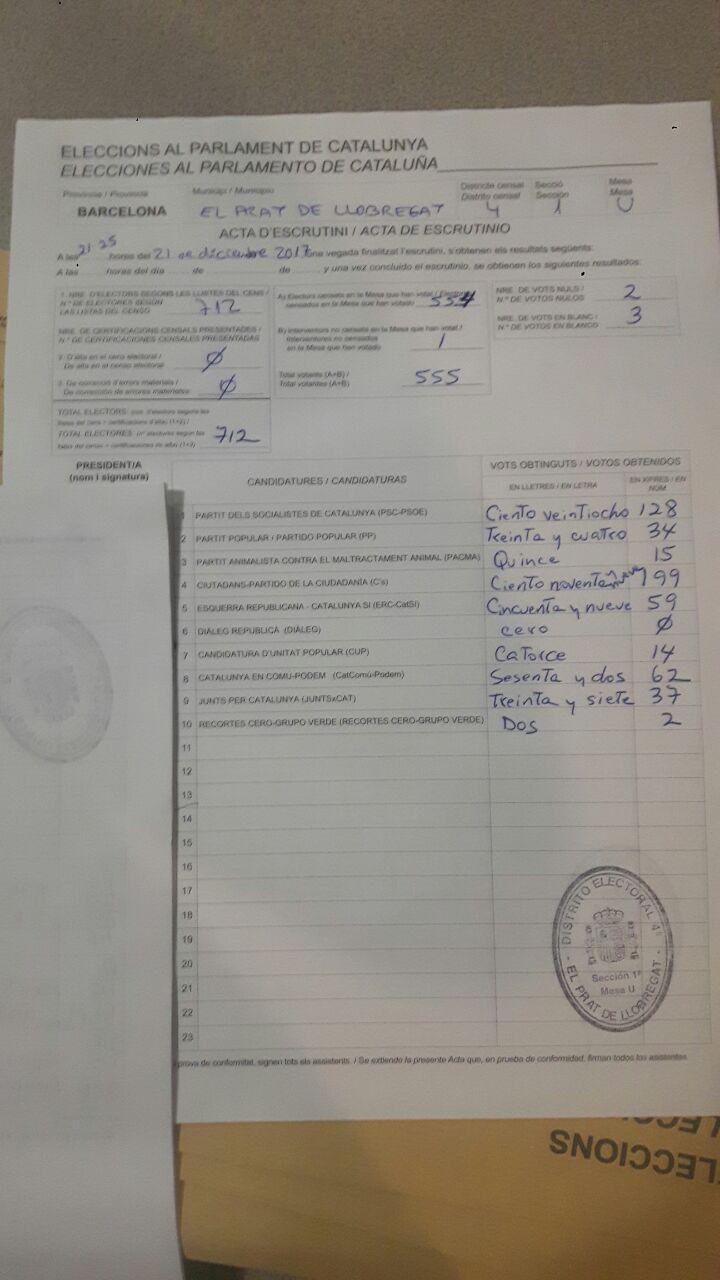 ELECCIONS AL PARLAMENT DE CATALUNYA
ELECCIONES AL PARLAMENTO DE CATALUÑA
Província / Provincia Municipi / Municipio Districte censal Secció Mesa
Distrito censal Sección Mesa
BARCELONA EL PRAT DE LLOBREGAT 4 1 U
ACTA D'ESCRUTINI / ACTA DE ESCRUTINIO
A les 21 25 hores del 21 de diciembre 2017 una vegada finalitzat l'escrutini, s'obtenen els resultats següents:
A las horas del día de de y una vez concluido el escrutinio, se obtienen los siguientes resultados:
1. NRE. D'ELECTORS SEGONS LES LLISTES DEL CENS /
N.º DE ELECTORES SEGÚN
LAS LISTAS DEL CENSO 712
NRE. DE CERTIFICACIONS CENSALS PRESENTADES /
N.º DE CERTIFICACIONES CENSALES PRESENTADAS
2. D'alta en el cens electoral /
De alta en el censo electoral Ø
3. De correcció d'errors materials /
De corrección de errores materiales Ø
TOTAL ELECTORS:
TOTAL ELECTORES: 712
A) Electors censats en la Mesa que han votat / Electores
censados en la Mesa que han votado 554
B) Interventors no censats en la Mesa que han votat /
Interventores no censados
en la Mesa que han votado 1
Total votants (A+B) /
Total votantes (A+B) 555
NRE. DE VOTS NULS /
N.º DE VOTOS NULOS 2
NRE. DE VOTS EN BLANC /
N.º DE VOTOS EN BLANCO 3
PRESIDENT/A
(nom i signatura)
CANDIDATURES / CANDIDATURAS VOTS OBTINGUTS / VOTOS OBTENIDOS
EN LLETRES / EN LETRA EN XIFRES / EN NÚM
1 PARTIT DELS SOCIALISTES DE CATALUNYA (PSC-PSOE) Ciento veintiocho 128
2 PARTIT POPULAR / PARTIDO POPULAR (PP) Treinta y cuatro 34
3 PARTIT ANIMALISTA CONTRA EL MALTRACTAMENT ANIMAL (PACMA) Quince 15
4 CIUTADANS-PARTIDO DE LA CIUDADANÍA (C's) Ciento noventa y nueve 199
5 ESQUERRA REPUBLICANA - CATALUNYA SÍ (ERC-CatSí) Cincuenta y nueve 59
6 DIÀLEG REPUBLICÀ (DIÀLEG) cero Ø
7 CANDIDATURA D'UNITAT POPULAR (CUP) Catorce 14
8 CATALUNYA EN COMÚ-PODEM (CatComú-Podem) Sesenta y dos 62
9 JUNTS PER CATALUNYA (JUNTSxCAT) Treinta y siete 37
10 RECORTES CERO-GRUPO VERDE (RECORTES CERO-GRUPO VERDE) Dos 2
11
12
13
14
15
16
17
18
19
20
21
22
23
DISTRITO ELECTORAL 4º
Sección 1ª
Mesa U
EL PRAT DE LLOBREGAT
prova de conformitat, signen tots els assistents. / Se extiende la presente Acta que, en prueba de conformidad, firman todos los asistentes.
ELECCIONS